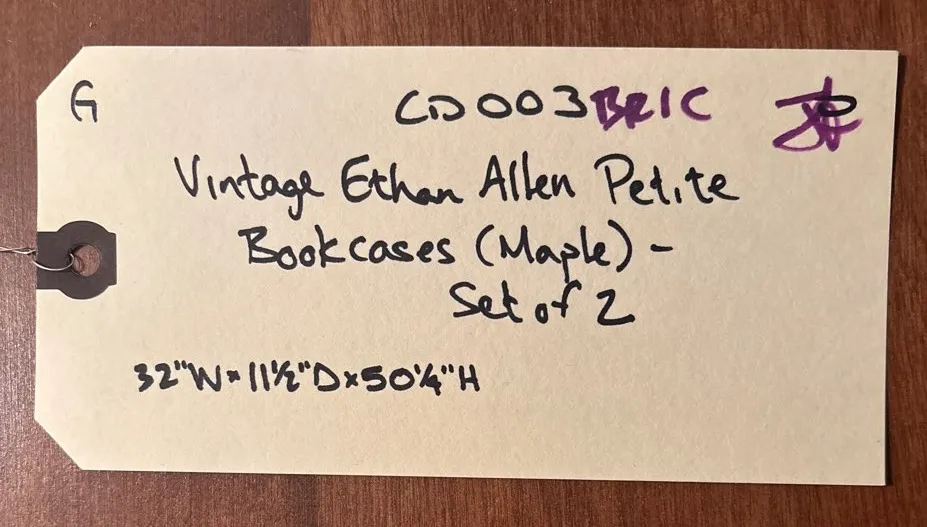 G CD003BRIC
Vintage Ethan Allen Petite
Bookcases (Maple) -
Set of 2
32"W×11½"D×50¼"H